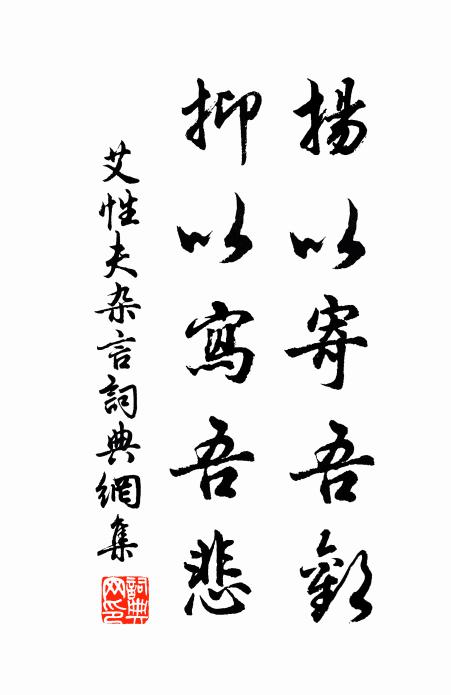 揚以寄吾歡
抑以寫吾悲
艾性夫杂言詞典網集
詞典網印